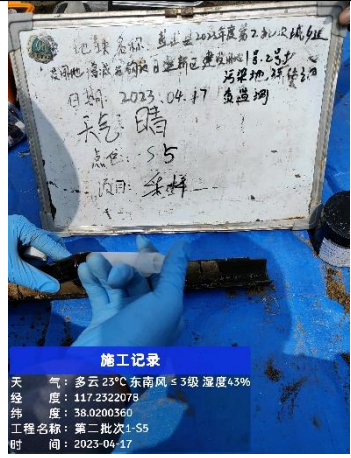 地块名称：盐山县2023年度第2批次城乡建
设用地
1号、2号地
污染地
日期：2023.04.17
天气：晴
点位：S5
项目：采样
施工记录
天 气：多云 23℃ 东南风 ≤ 3级 湿度43%
经 度：117.2322078
纬 度：38.0200360
工程名称：第二批次1-S5
时 间：2023-04-17